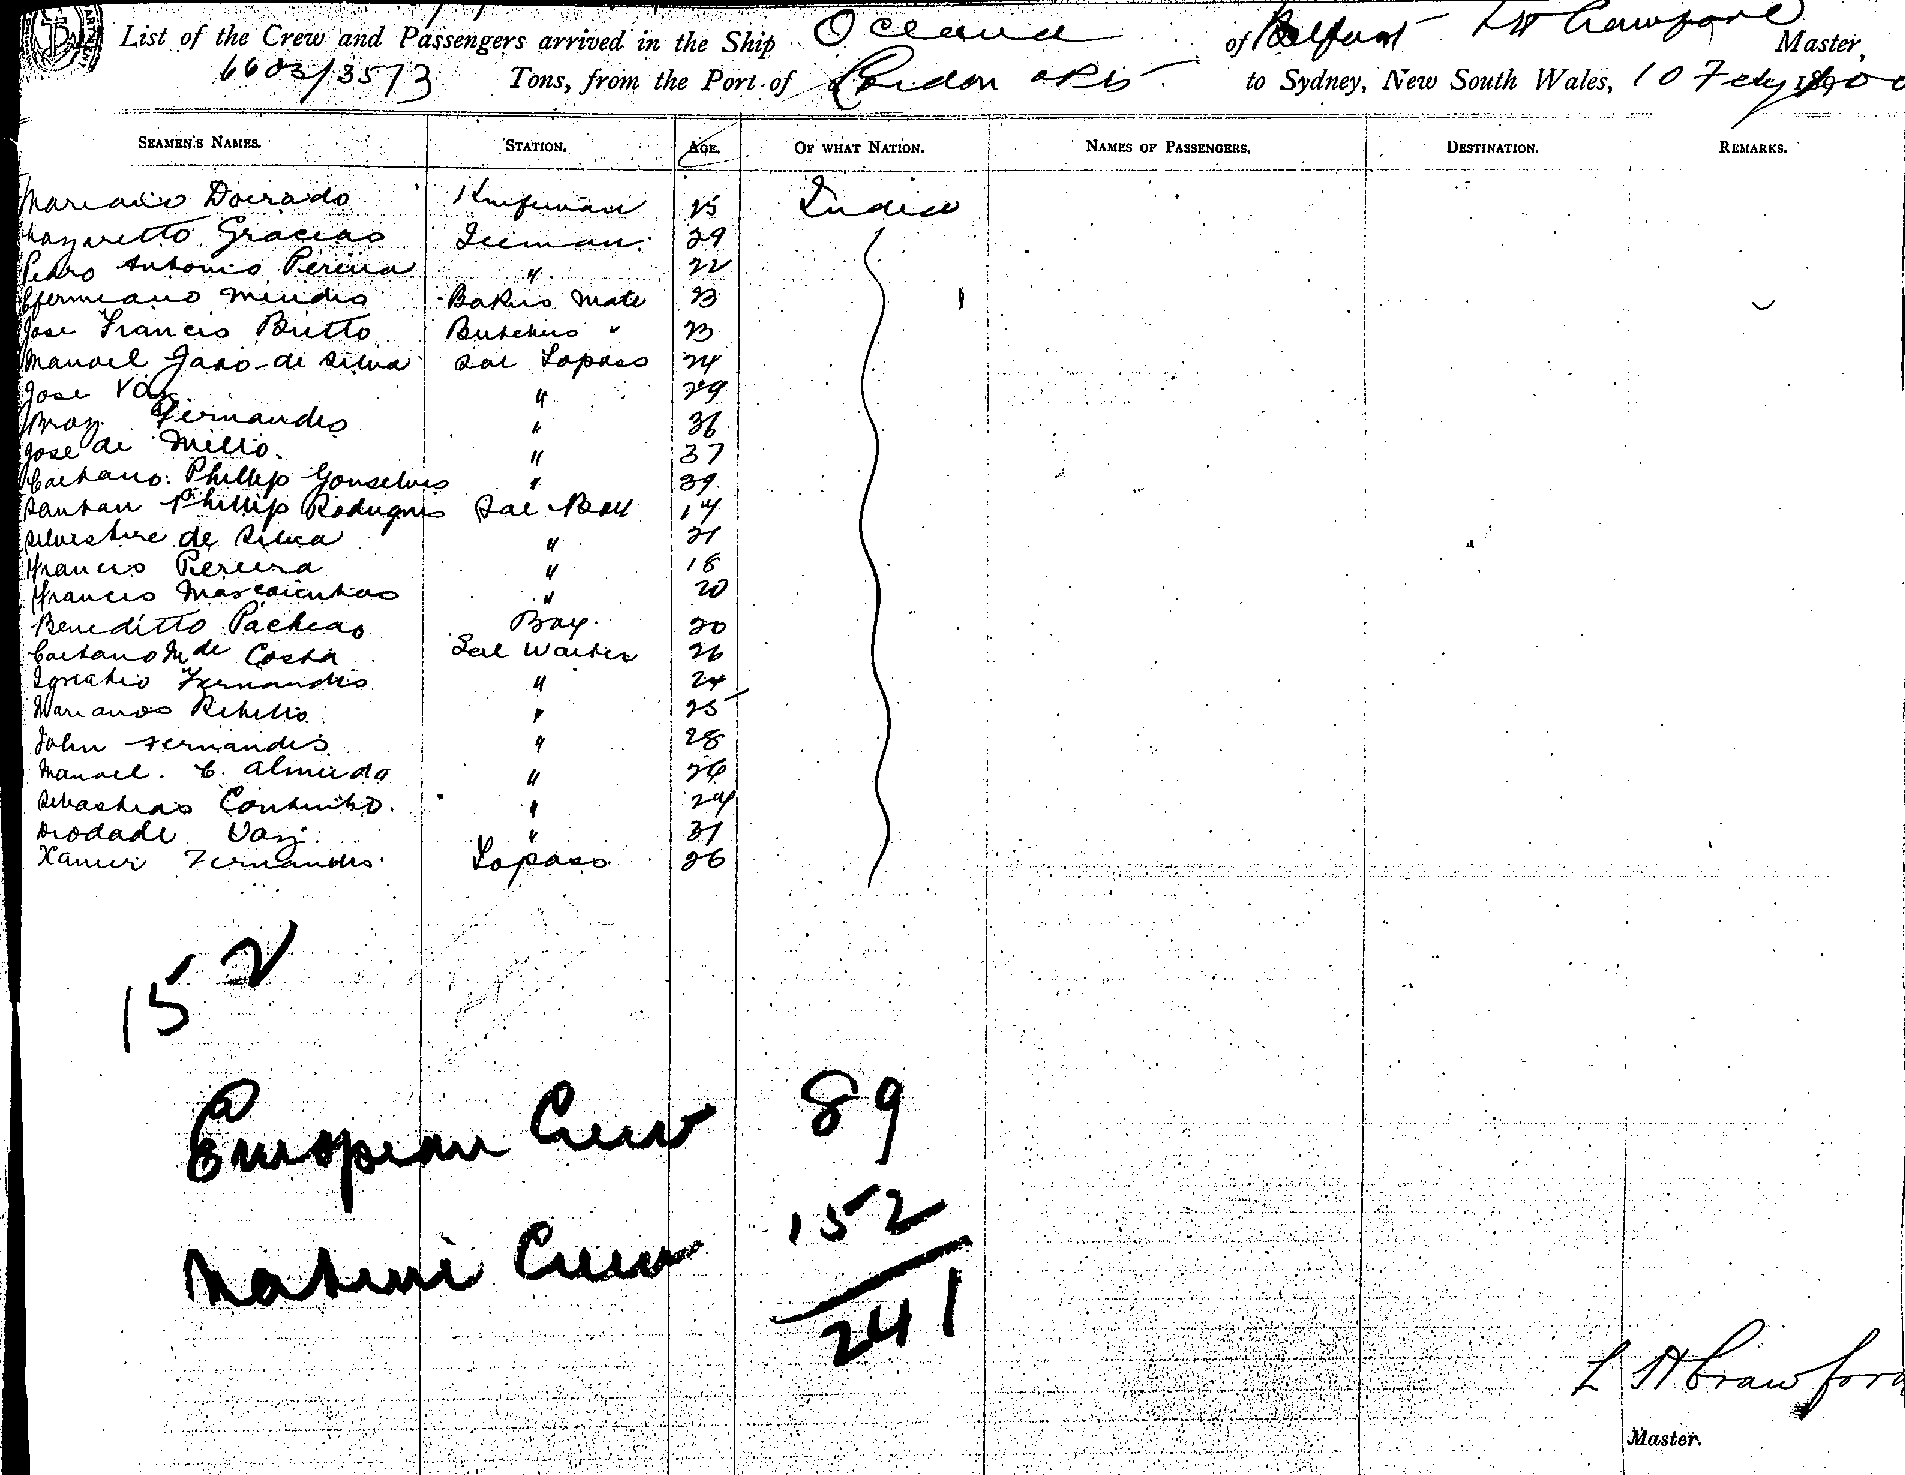 List of the Crew and Passengers arrived in the Ship Oceana of Belfast L H Crawford Master,
6603/3573 Tons, from the Port of London & Pts to Sydney, New South Wales, 10 Feby 1900
SEAMEN'S NAMES. STATION. AGE. OF WHAT NATION. NAMES OF PASSENGERS. DESTINATION. REMARKS.
Dorado 25 India
Gracias 29
Pedro Antonio Pereira " 22
Mendis Bakers Mate 23
Jose Francis Britto Butchers " 23
Manoel de Silva Sal Topass 24
Jose Vaz " 29
Braz Fernandes " 36
Jose de Mello. " 37
Caetano Phillip Gonselves " 39
Santan Phillip Rodrigues Sal Boy 17
Silvestire de Silva " 21
Francis Pereira " 18
Francis " 20
Beneditto Pacheao Boy. 20
Caetano M de Costa Sal Waiter 26
Ignatio Fernandes " 24
Marianos Rebello " 25
John Fernandes " 28
Manoel. C. Almeida " 26
Sebastias Continho. " 24
Diodade Vaz. " 31
Xavier Fernandes. Topass 26
152
European Crew 89
Native Crew 152
241
L H Crawford
Master.